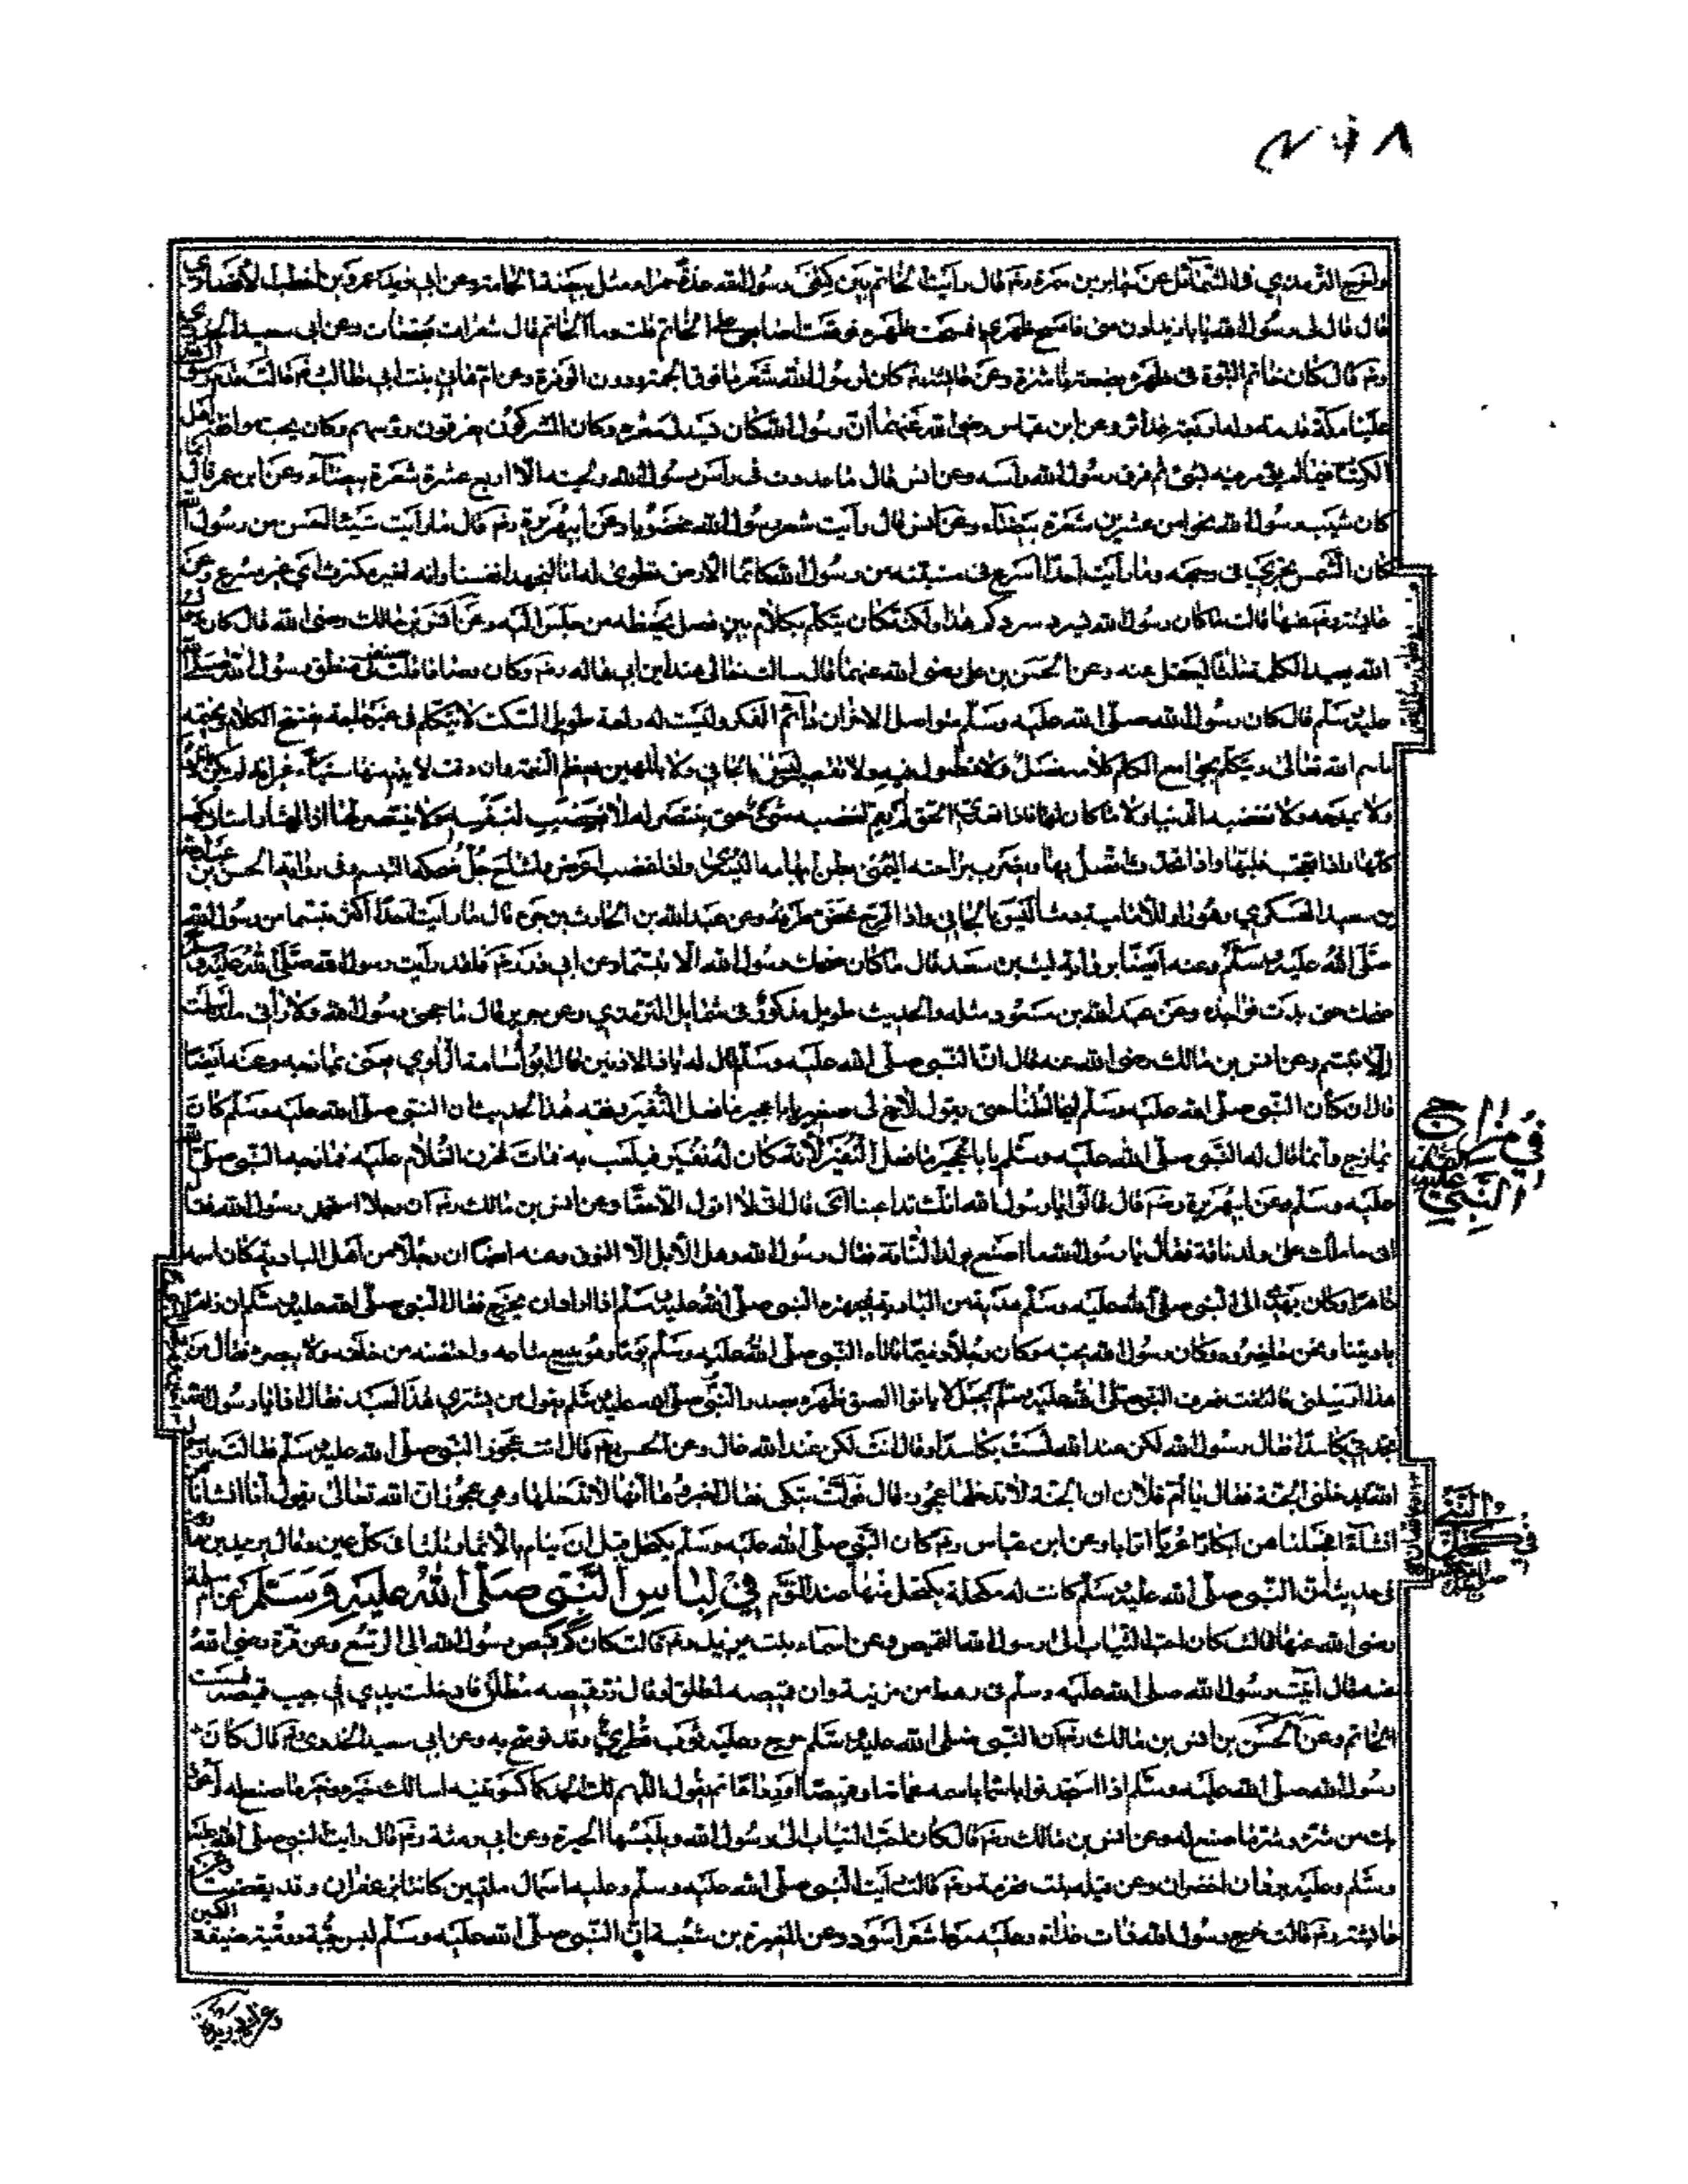 واخرج الترمذي في الشمائل عن جابر بن سمرة رضم قال رأيت الخاتم بين كتفي رسول الله غدة حمراء مثل بيضة الحمامة وعن ابي زيد عمرو بن اخطب الانصاري
قال قال لي رسول الله يا ابا زيد ادن مني فامسح ظهري فمسحت ظهره فوقعت اصابعي على الخاتم قلت وما الخاتم قال شعرات مجتمعات وعن ابي سعيد الخدري
رضم قال كان خاتم النبوة في ظهره بضعة ناشزة وعن عائشة رضم كان لرسول الله شعر فوق الجمة ودون الوفرة وعن ام هاني بنت ابي طالب رضم قالت قدم رسول الله
علينا مكة قدمة وله اربع غدائر وعن ابن عباس رضي الله عنهما ان رسول الله كان يسدل شعره وكان المشركون يفرقون رؤسهم وكان يحب موافقة اهل
الكتاب فيما لم يؤمر فيه بشئ ثم فرق رسول الله رأسه وعن انس قال ما عددت في رأس رسول الله ولحيته الا اربع عشرة شعرة بيضاء وعن ابن عمر قال
كان شيب رسول الله نحوا من عشرين شعرة بيضاء وعن انس قال رأيت شعر رسول الله مخضوبا وعن ابي هريرة رضم قال ما رأيت شيئا احسن من رسول الله
كان الشمس تجري في وجهه وما رأيت احدا اسرع في مشيته من رسول الله كانما الارض تطوى له انا لنجهد انفسنا وانه لغير مكترث اي غير مسرع وعن
عائشة رضم عنها قالت ما كان رسول الله يسرد سردكم هذا ولكنه كان يتكلم بكلام بين فصل يحفظه من جلس اليه وعن انس بن مالك رضي الله قال كان
الله يعيد الكلمة ثلثا لتعقل عنه وعن الحسن بن علي رضي الله عنهما قال سالت خالي هند بن ابي هالة رضم وكان وصافا قلت صف لي منطق رسول الله صلى
عليه وسلم قال كان رسول الله صلى الله عليه وسلم متواصل الاحزان دائم الفكر وليست له راحة طويل السكت لا يتكلم في غير حاجة يفتتح الكلام ويختمه
باسم الله تعالى ويتكلم بجوامع الكلم كلامه فصل ولا فضول فيه ولا تقصير ليس بالجافي ولا بالمهين يعظم النعمة وان دقت لا يذم منها شيئا غير انه لم يكن
ولا يمدحه ولا تغضبه الدنيا ولا ما كان لها فاذا تعدي الحق لم يقم لغضبه شئ حتى ينتصر له لا يغضب لنفسه ولا ينتصر لها اذا اشار اشار بكفه
كلها واذا تعجب قلبها واذا تحدث اتصل بها وضرب براحته اليمنى بطن ابهامه اليسرى واذا غضب اعرض واشاح جل ضحكه التبسم وفي رواية الحسن بن عبد الله
بن سعيد العسكري
صلى الله عليه وسلم وعنه ايضا برواية ليث بن سعد قال ما كان ضحك رسول الله الا تبسما وعن ابي ذر رضم فلقد رأيت رسول الله صلى الله عليه وسلم
ضحك حتى بدت نواجذه وعن عبد الله بن مسعود مثله والحديث طويل مذكور في شمايل الترمذي وعن جرير قال ما حجبني رسول الله ولا رأني منذ اسلمت
الا تبسم وعن انس بن مالك رضي الله عنه قال ان النبي صلى الله عليه وسلم قال له يا ذا الاذنين قال ابو اسامة الراوي يعني يمازحه وعنه ايضا
قال ان كان النبي صلى الله عليه وسلم ليخالطنا حتى يقول لاخ لي صغير يا ابا عمير ما فعل النغير وفقه هذا الحديث ان النبي صلى الله عليه وسلم كان
يمازح وانما قال له النبي صلى الله عليه وسلم يا ابا عمير ما فعل النغير لانه كان له نغير فيلعب به فمات فحزن الغلام عليه فمازحه النبي صلى الله
عليه وسلم وعن ابي هريرة رضم قال قالوا يا رسول الله انك تداعبنا قال اني لا اقول الا حقا وعن انس بن مالك رضم ان رجلا استحمل رسول الله فقال
اني حاملك على ولد ناقة فقال يا رسول الله ما اصنع بولد الناقة فقال رسول الله وهل الابل الا النوق وعنه ايضا ان رجلا من اهل البادية كان اسمه
زاهرا وكان يهدي الى النبي صلى الله عليه وسلم هدية من البادية فيجهزه النبي صلى الله عليه وسلم اذا اراد ان يخرج فقال النبي صلى الله عليه وسلم ان زاهرا
باديتنا ونحن حاضروه وكان رسول الله يحبه وكان رجلا دميما فاتاه النبي صلى الله عليه وسلم يوما وهو يبيع متاعه واحتضنه من خلفه ولا يبصره فقال من
هذا ارسلني فالتفت فعرف النبي صلى الله عليه وسلم فجعل لا يالوا الصق ظهره بصدر النبي صلى الله عليه وسلم يقول من يشتري هذا العبد فقال اذا يا رسول الله
تجدني كاسدا فقال رسول الله لكن عند الله لست بكاسد او قال انت لكن عند الله غال وعن الحسن رضم قال اتت عجوز النبي صلى الله عليه وسلم فقالت يا رسول
الله يدخلني الجنة فقال يا ام فلان ان الجنة لا تدخلها عجوز قال فولت تبكي فقال اخبروها انها لا تدخلها وهي عجوز ان الله تعالى يقول انا انشاناهن
انشاء فجعلناهن ابكارا عربا اترابا وعن ابن عباس رضم كان النبي صلى الله عليه وسلم يكتحل قبل ان ينام بالاثمد ثلثا في كل عين وقال يزيد بن هارون
في حديثه ان النبي صلى الله عليه وسلم كانت له مكحلة يكتحل منها عند النوم في لباس النبي صلى الله عليه وسلم عن ام سلمة
رضي الله عنها قالت كان احب الثياب الى رسول الله القميص وعن اسماء بنت يزيد رضم قالت كان كم قميص رسول الله الى الرسغ وعن قرة رضي الله
عنه قال اتيت رسول الله صلى الله عليه وسلم في رهط من مزينة وان قميصه لمطلق او قال زر قميصه مطلق فادخلت يدي في جيب قميصه فمسست
الخاتم وعن الحسن بن انس بن مالك رضم ان النبي صلى الله عليه وسلم خرج وعليه ثوب قطري قد توشح به وعن ابي سعيد الخدري رضم قال كان
رسول الله صلى الله عليه وسلم اذا استجد ثوبا سماه باسمه عمامة او قميصا او رداء ثم يقول اللهم لك الحمد كما كسوتنيه اسالك خيره وخير ما صنع له واعوذ
بك من شره وشر ما صنع له وعن انس بن مالك رضم قال كان احب الثياب الى رسول الله يلبسها الحبرة وعن ابي رمثة رضم قال رايت النبي صلى الله عليه
وسلم وعليه بردان اخضران وعن قيلة بنت مخرمة رضم قالت رأيت النبي صلى الله عليه وسلم وعليه اسمال مليتين كانتا بزعفران وقد نفضت وعن
عائشة رضم قالت خرج رسول الله ذات غداة وعليه مرط شعر اسود وعن المغيرة بن شعبة ان النبي صلى الله عليه وسلم لبس جبة رومية ضيقة الكمين
في مزاح
النبي